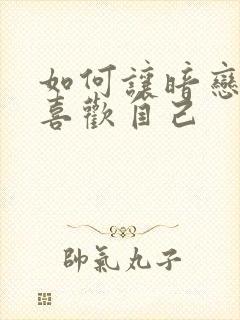 如何讓暗戀
喜歡自己
帥氣丸子